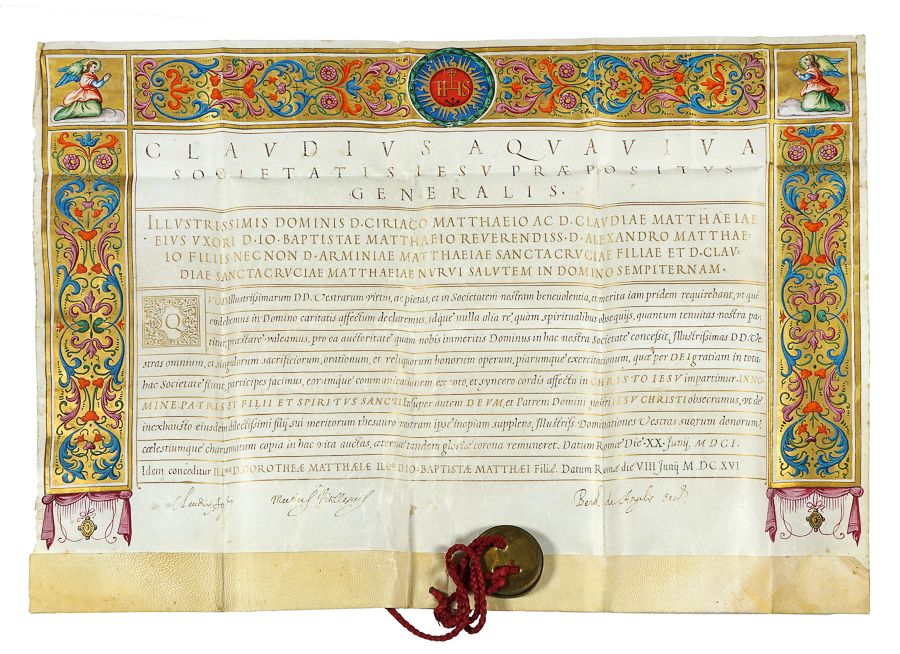 IHS
CLAVDIVS AQVAVIVA
SOCIETATIS IESV PRÆPOSITVS
GENERALIS.
ILLVSTRISSIMIS DOMINIS D. CIRIACO MATTHAEIO AC D. CLAVDIAE MATTHAEIAE
EIVS VXORI D. IO. BAPTISTAE MATTHAEIO REVERENDISS. D. ALEXANDRO MATTHAE-
IO FILIIS NEC NON D. ARMINIAE MATTHAEIAE SANCTACRVCIAE FILIAE ET D. CLAV-
DIAE SANCTACRVCIAE MATTHAEIAE NVRVI SALVTEM IN DOMINO SEMPITERNAM.
QVOD Illustrissimarum DD. Vestrarum virtus, ac pietas, et in Societatem nostram beneuolentia, et merita iam pridem requirebant, vt quē
endebemus in Domino caritatis affectum declaremus, idque nulla alia re, quam spiritualibus obsequijs, quantum tenuitas nostra pa-
titur, præstare valeamus, pro ea auctoritate quam nobis immeritis Dominus in hac nostra Societate concessit, Illustrissimas DD. Ve-
stras omnium, et singulorum sacrificiorum, orationum, et reliquorum bonorum operum, piarumque exercitationum, quæ per DEI gratiam in tota
hac Societate fiunt, participes facimus, eorumque communicationem ex toto, et syncero cordis affectu in CHRISTO IESV impartimur. IN NO-
MINE PATRIS ET FILII ET SPIRITVS SANCTI. Insuper autem DEVM, et Patrem Domini nostri IESV CHRISTI obsecramus, vt de
inexhausto eiusdem dilectissimi filij sui meritorum thesauro nostram ipse inopiam supplens, Illustriss. Dominationes Vestras suorum donorum,
cælestiumque charismatum copia in hac vita auctas, æternæ tandem gloriæ corona remuneret. Datum Romæ Die XX. Junij, MDCI.
Idem conceditur Ill.mæ D. DOROTHEÆ MATTHÆIÆ Ill.mi D IO. BAPTISTÆ MATTHÆI Filiæ. Datum Romæ die VIII Junij M.DC.XVI.
Mutius Vitellescus
Bern. de Angelis